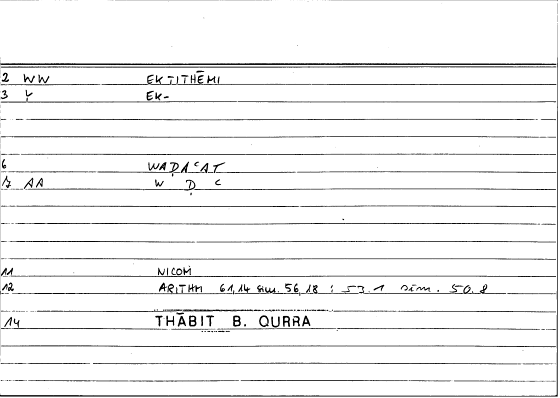 2 WW EKTITHĒMI
3 Y EK-
6 WAḌAʿAT
7 AA W Ḍ ʿ
11 NICOM
12 ARITHM 61,14 sim. 56,18 : 53.1 sim. 50.8
14 THĀBIT B. QURRA